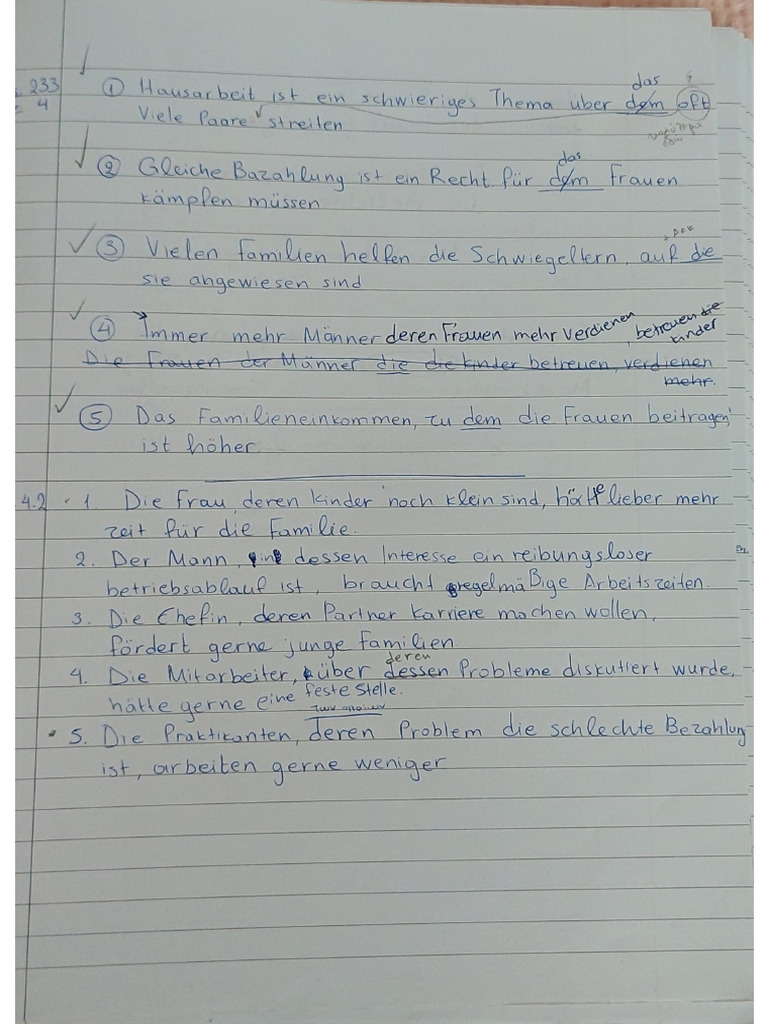 233
4
① Hausarbeit ist ein schwieriges Thema uber dem das oft
Viele Paare streiten
② Gleiche Bazahlung ist ein Recht für dem das Frauen
kämpfen müssen
③ Vielen Familien helfen die Schwiegeltern, auf die
sie angewiesen sind
④ Immer mehr Männer deren Frauen mehr verdienen, betreuen die
kinder
Die Frauen der Männer die die kinder betreuen, verdienen
mehr.
⑤ Das Familieneinkommen, zu dem die Frauen beitragen,
ist höher.
4.2 1. Die Frau, deren kinder noch klein sind, hätte lieber mehr
zeit für die Familie.
2. Der Mann, dessen Interesse ein reibungsloser
betriebsablauf ist, braucht regelmäßige Arbeitszeiten.
3. Die Chefin, deren Partner Karriere machen wollen,
fördert gerne junge Familien.
deren
4. Die Mitarbeiter, über dessen Probleme diskutiert wurde,
hätte gerne eine feste Stelle.
5. Die Praktikanten, deren Problem die schlechte Bezahlung
ist, arbeiten gerne weniger